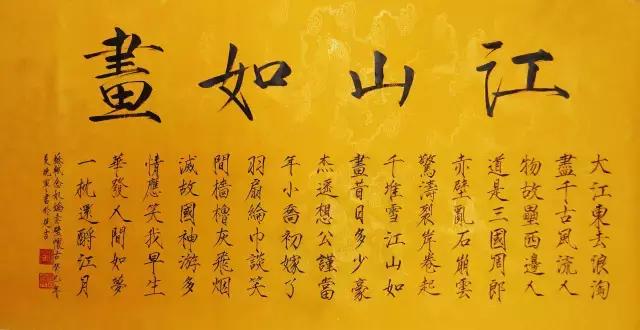 江山如畫
大江東去浪淘
盡千古風流人
物故壘西邊人
道是三國周郎
赤壁亂石崩雲
驚濤裂岸卷起
千堆雪江山如
畫昔日多少豪
杰遙想公謹當
年小喬初嫁了
羽扇綸巾談笑
間檣櫓灰飛烟
滅故國神游多
情應笑我早生
華發人間如夢
一枕還酹江月
蘇軾念奴嬌赤壁懷古